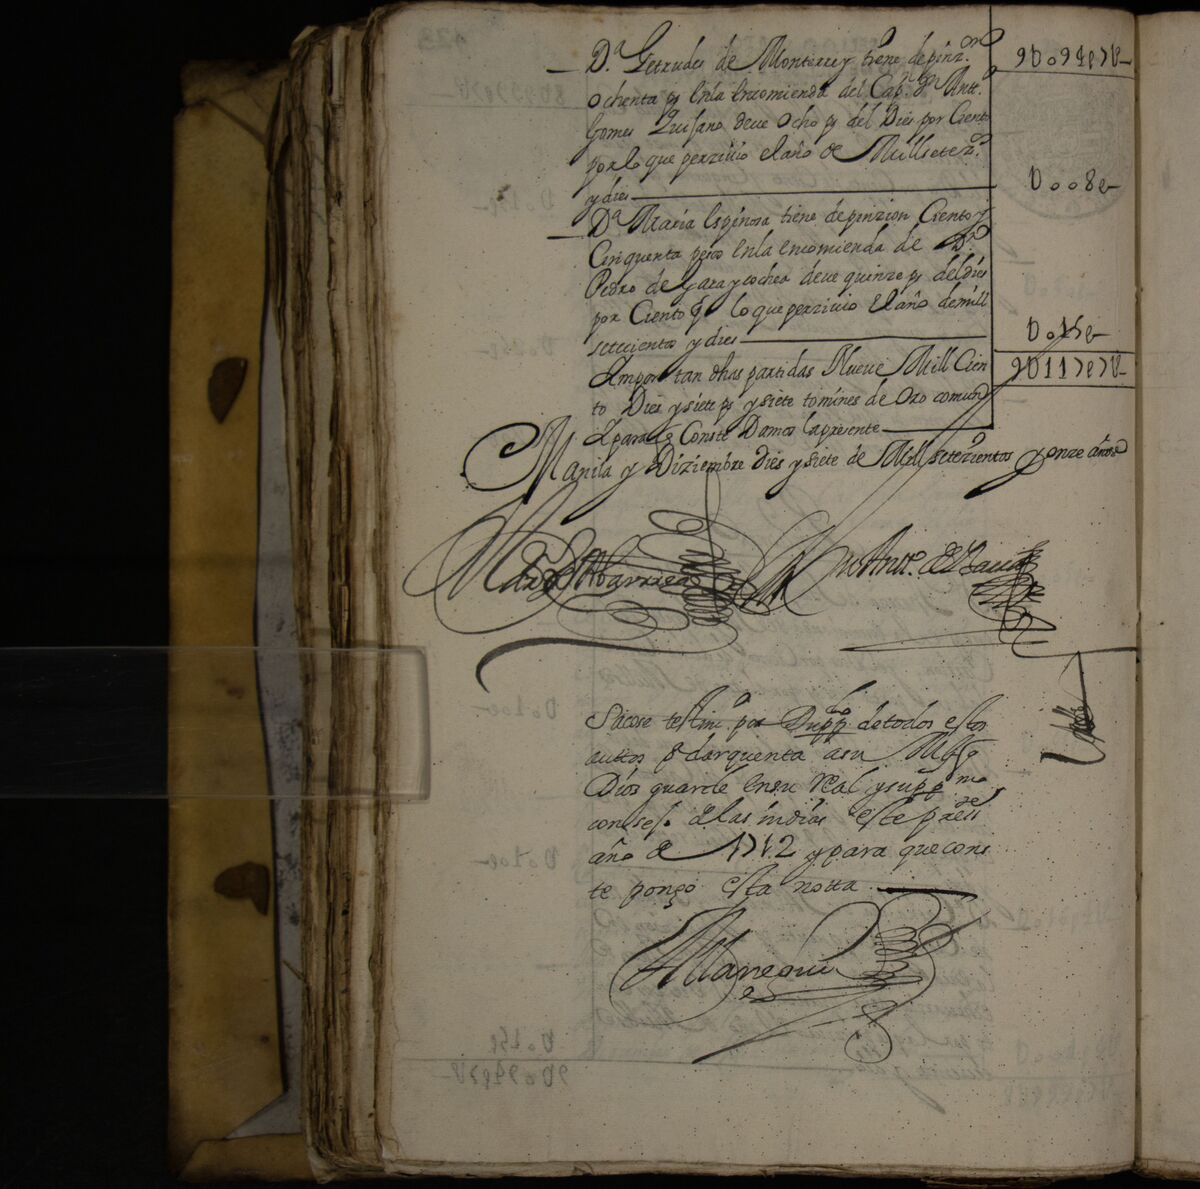 D.ª Getrudes de Monterrey tiene de pinz.on 9U094p7U
ochenta ps en la encomienda del Cap.n D.n Antt.o
Gomes Quijano deve ocho ps del Dies por Ciento
por lo que perzivio el año de Mill setez.os
y dies 0008p
D.ª Maria Espinosa tiene de pinzion Ciento y
Cinquenta pesos en la encomienda de D.n
Pedro de Garaycochea deve quinze ps del dies
por Ciento lo que perzivio el año de mill
setecientos y dies 0015p
Importan dhas partidas Nueve Mill Cien
to Dies y siete ps y siete tomines de Oro comun 9U117p7U
para q Conste Damos la presente
Manila y Diziembre dies y siete de Mill setezientos y onze años
Sacose testim.o por Dupp.do de todos estos
auttos para dar quenta a su Mag.d q
Dios guarde en su Real y supp.mo
consejo de las indias este press.te
año de 1712 y para que cons
te pongo esta notta